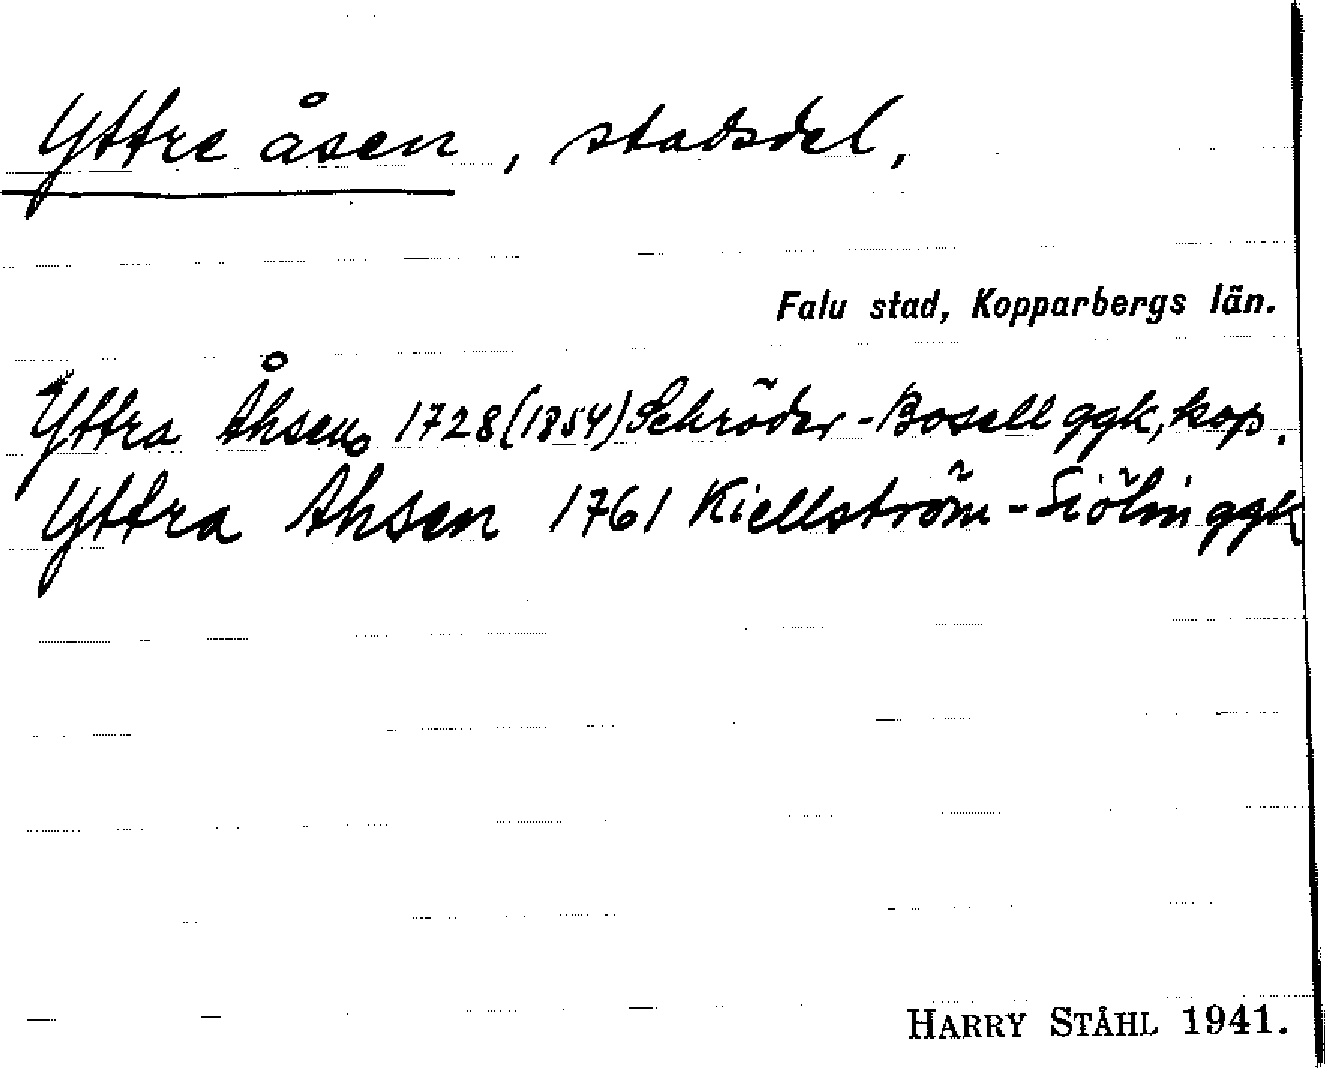 Yttre åsen, stadsdel,
Falu stad, Kopparbergs län.
Yttra Åhsen 1728 (1854) Schröder-Bosell ggk, kop.
Yttra Ahsen 1761 Kiellström-Siölin ggk
HARRY STÅHL 1941.